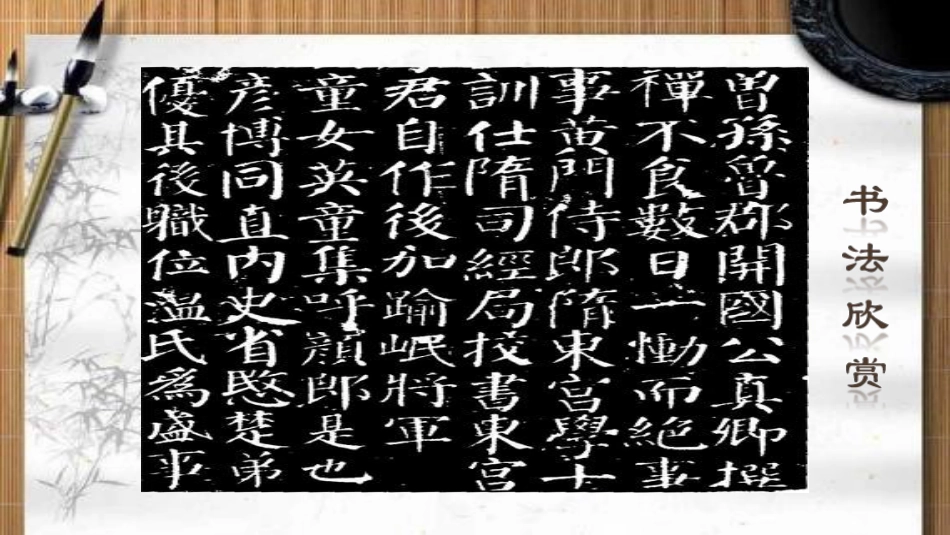 书法欣赏
曾孫魯郡開國公真卿撰
禪不食數日一慟而絶事
事黄門侍郎隋東宮學士
訓仕隋司經局挍書東宮
君自作後加踰岷將軍
童女英童集呼顔郎是也
彦博同直内史省愍楚弟
優具後職位温氏為盛事